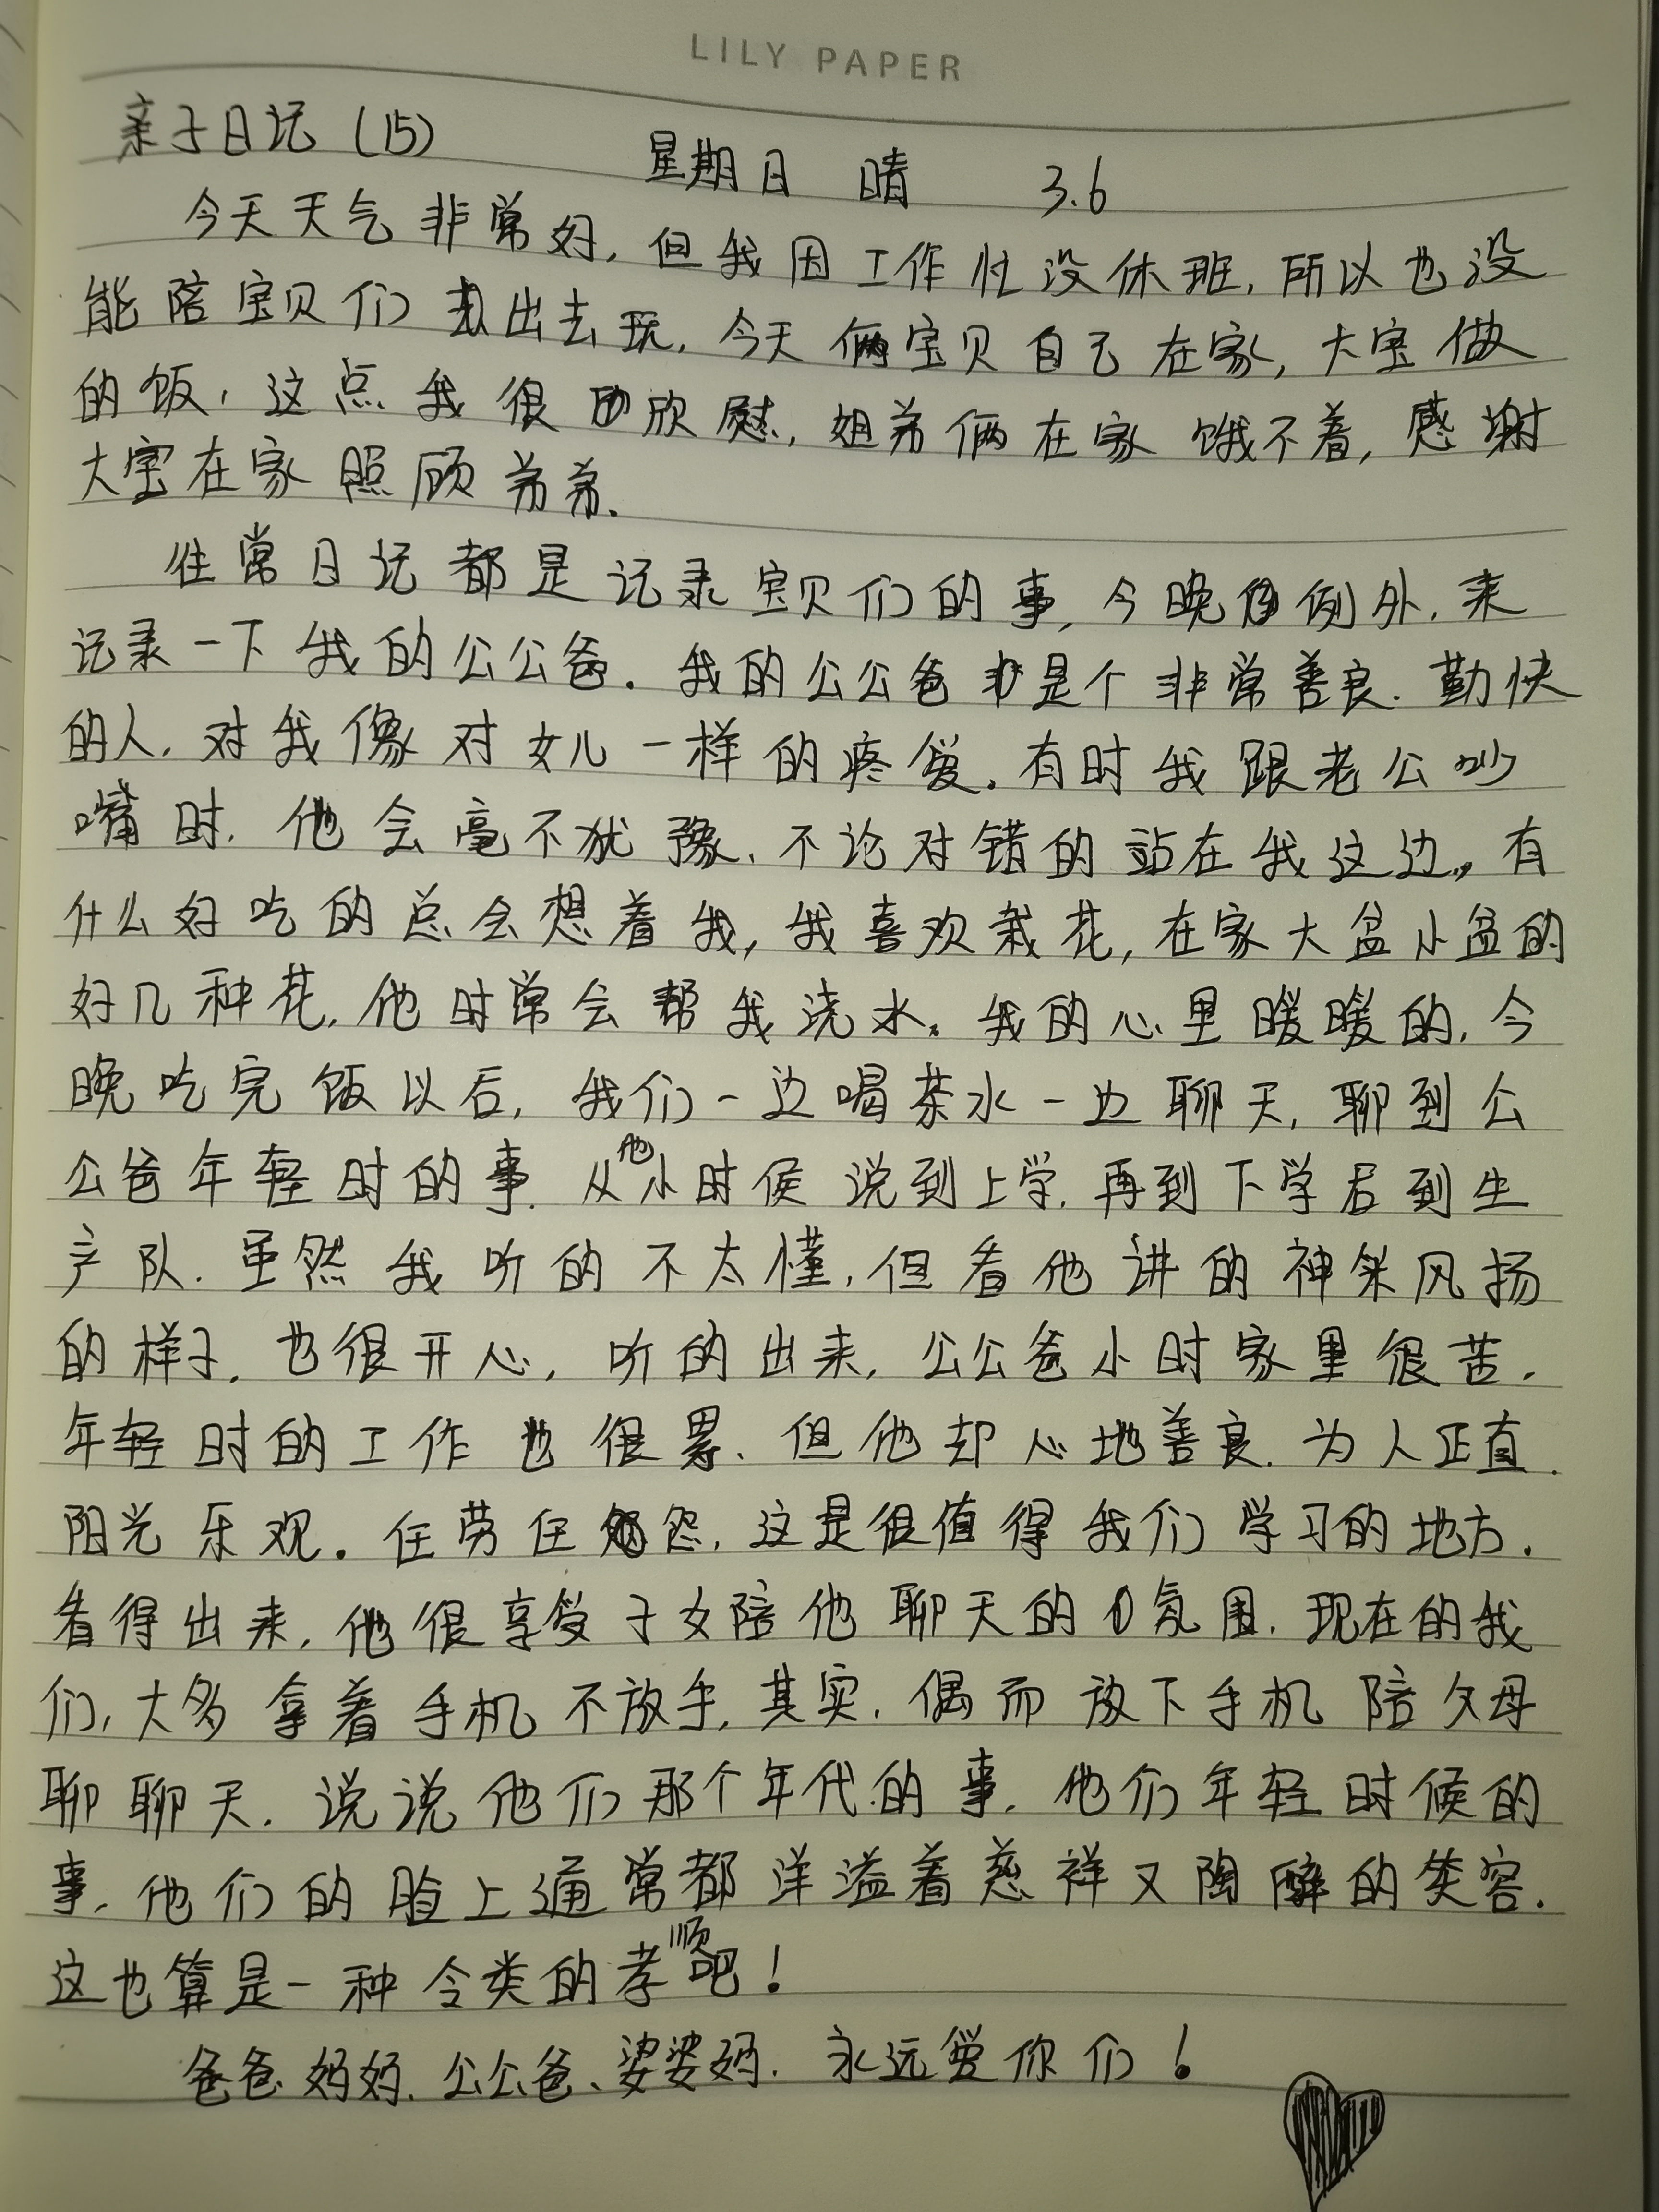 LILY PAPER
亲子日记（15）
星期日 晴 3.6
今天天气非常好，但我因工作忙没休班，所以也没
能陪宝贝们出去玩，今天俩宝贝自己在家，大宝做
的饭，这点我很欣慰，姐弟俩在家饿不着，感谢
大宝在家照顾弟弟.
往常日记都是记录宝贝们的事，今晚例外，来
记录一下我的公公爸.我的公公爸是个非常善良.勤快
的人，对我像对女儿一样的疼爱.有时我跟老公吵
嘴时.他会毫不犹豫、不论对错的站在我这边，有
什么好吃的总会想着我，我喜欢栽花，在家大盆小盆的
好几种花，他时常会帮我浇水。我的心里暖暖的，今
晚吃完饭以后，我们一边喝茶水一边聊天，聊到公
公爸年轻时的事.从他小时侯说到上学，再到下学后到生
产队.虽然我听的不太懂，但看他讲的神采风扬
的样子，也很开心，听的出来，公公爸小时家里很苦.
年轻时的工作也很累、但他却心地善良.为人正直.
阳光乐观.任劳任怨，这是很值得我们学习的地方.
看得出来，他很享受子女陪他聊天的氛围.现在的我
们，大多拿着手机不放手，其实，偶而放下手机陪父母
聊聊天.说说他们那个年代的事.他们年轻时候的
事.他们的脸上通常都洋溢着慈祥又陶醉的笑容.
这也算是一种令类的孝顺吧！
爸爸妈妈.公公爸、婆婆妈.永远爱你们！